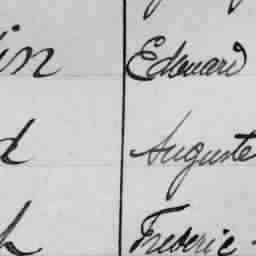 in Edouard
d Auguste
Frederic